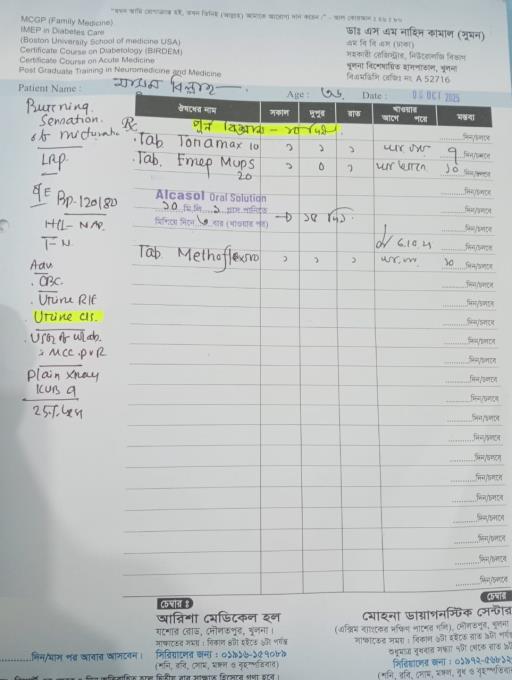 "যখন আমি রোগাক্রান্ত হই, তখন তিনিই (আল্লাহ) আমাকে আরোগ্য দান করেন।" - আল কোরআন : ২৬ : ৮০
MCGP (Family Medicine)
IMEP in Diabetes Care
(Boston University School of medicine USA)
Certificate Course on Diabetology (BIRDEM)
Certificate Course on Acute Medicine
Post Graduate Training in Neuromedicine and Medicine
ডাঃ এস এম নাহিদ কামাল (সুমন)
এম বি বি এস (ঢাকা)
সহকারী রেজিস্ট্রার, নিউরোলজি বিভাগ
খুলনা বিশেষায়িত হাসপাতাল, খুলনা
বিএমডিসি রেজিঃ নং A 52716
Patient Name :
Age : ৩৬ Date : 05 OCT 2025
ঔষধের নাম সকাল দুপুর রাত খাওয়ার আগে পরে মন্তব্য
Burning
Sensation
of micturate
LRP
O/E Bp-120/80
H/L- NAD
Adv
CBC
Urine R/E
Urine c/s.
USG of W/ab.
MCC, PVR
Plain Xray
KUB
25% less
Rx
Tab Tonamax 10 ১ ১ ১
Tab. Emep Mups 20 ১ ০ ১ ১০
Alcasol Oral Solution
১০ মি.লি. ১ গ্লাস পানিতে
মিশিয়ে দিনে ৩ বার (খাওয়ার পর)
Tab. Methoflex 500 ১ ১ ১ ১০
দিন/চলবে
চেম্বার :
আরিশা মেডিকেল হল
যশোর রোড, দৌলতপুর, খুলনা।
সাক্ষাতের সময় : বিকাল ৪টা হইতে ৬টা পর্যন্ত
সিরিয়ালের জন্য : ০১৯১৬-১৫৭০৮৯
(শনি, রবি, সোম, মঙ্গল ও বৃহস্পতিবার)
চেম্বার
মোহনা ডায়াগনস্টিক সেন্টার
(এক্সিম ব্যাংকের দক্ষিণ পাশের গলি), দৌলতপুর, খুলনা
সাক্ষাতের সময় : বিকাল ৬টা হইতে রাত ৯টা পর্যন্ত
শুধুমাত্র বুধবার সন্ধ্যা ৭টা থেকে রাত ৯টা
সিরিয়ালের জন্য : ০১৯৭২-৫৬৮১২
(শনি, রবি, সোম, মঙ্গল, বুধ ও বৃহস্পতিবার)
দিন/মাস পর আবার আসবেন।